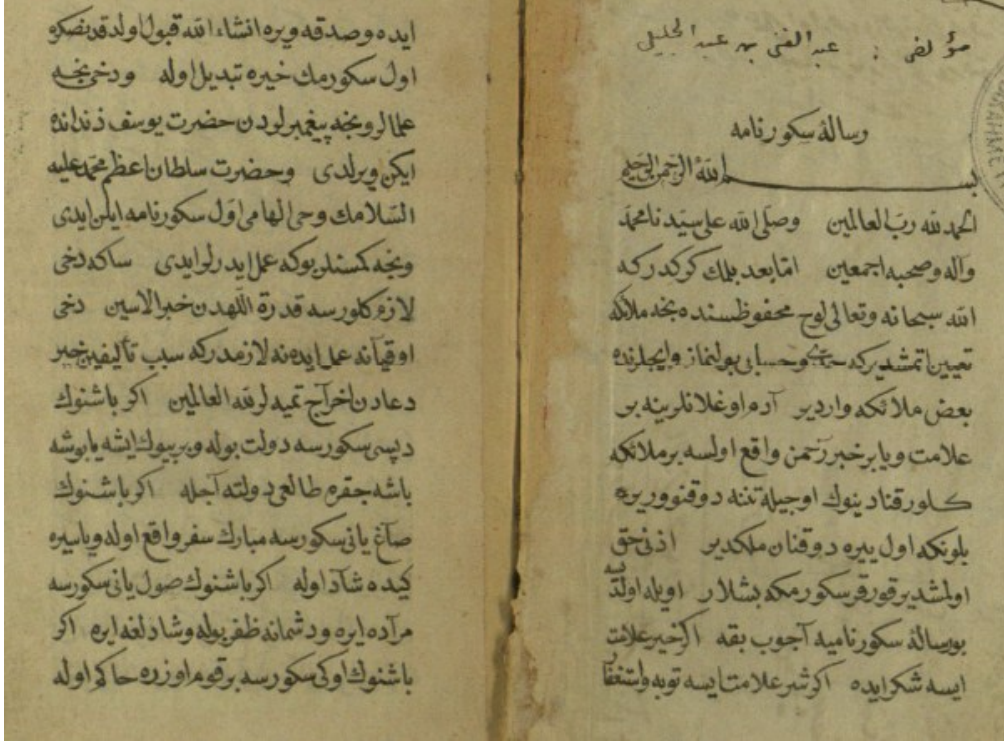 مؤلفی : عبد الغنی بن عبد الجلیلی
رسالۀ سکورنامه
بسم الله الرحمن الرحیم
الحمد لله رب العالمین وصلی الله علی سیدنا محمد
وآله وصحبه اجمعین امّا بعد بلمك کرکدرکه
الله سبحانه وتعالی لوح محفوظسنده نجه ملائکه
تعیین اتمشدیرکه وحسابی بولنماز وایجلرنده
بعض ملائکه واردیر آدم اوغلانلرینه بر
علامت ویا بر خبر رحمن واقع اولسه بر ملائکه
کلور قنادینوك اوجیله تننه دوقنوویریره
بلونکه اول ییره دوقنان ملکدیر اذنی حق
اولمشدیر قورقر سکورمکه بشلار اویله اولسه
بو رسالۀ سکورنامیه آجوب بقه اکر خیر علامت
ایسه شکر ایده اکر شر علامت ایسه توبه واستغفار
ایده وصدقه ویره انشاء الله قبول اولدقدنصکره
اول سکورمك خیره تبدیل اوله ودخی نجه
علمالر ونجه پیغمبرلردن حضرت یوسف زندانده
ایکن ویرلدی وحضرت سلطان اعظم محمد علیه
السلامك وحی الهامی اول سکورنامه ایلن ایدی
ونجه کمسنلر بوکه عمل ایدرلر ایدی ساکه دخی
لازم کلورسه قدرة اللهدن خبر الاسین دخی
اوقیانه عمل ایدنه لازمدرکه سبب تألیفین خیر
دعادن اخراج تمیه لر لله العالمین اکر باشنوك
دپسی سکورسه دولت بوله وبر بیوك ایشه یابوشه
باشه جقره طالعی دولته آجله اکر باشنوك
صاغ یانی سکورسه مبارك سفر واقع اوله ویا سیره
کیده شاد اوله اکر باشنوك صول یانی سکورسه
مراده ایره ودشمانه ظفر بوله وشادلغه ایره اکر
باشنوك اوکی سکورسه بر قوم اوزره حاکم اوله